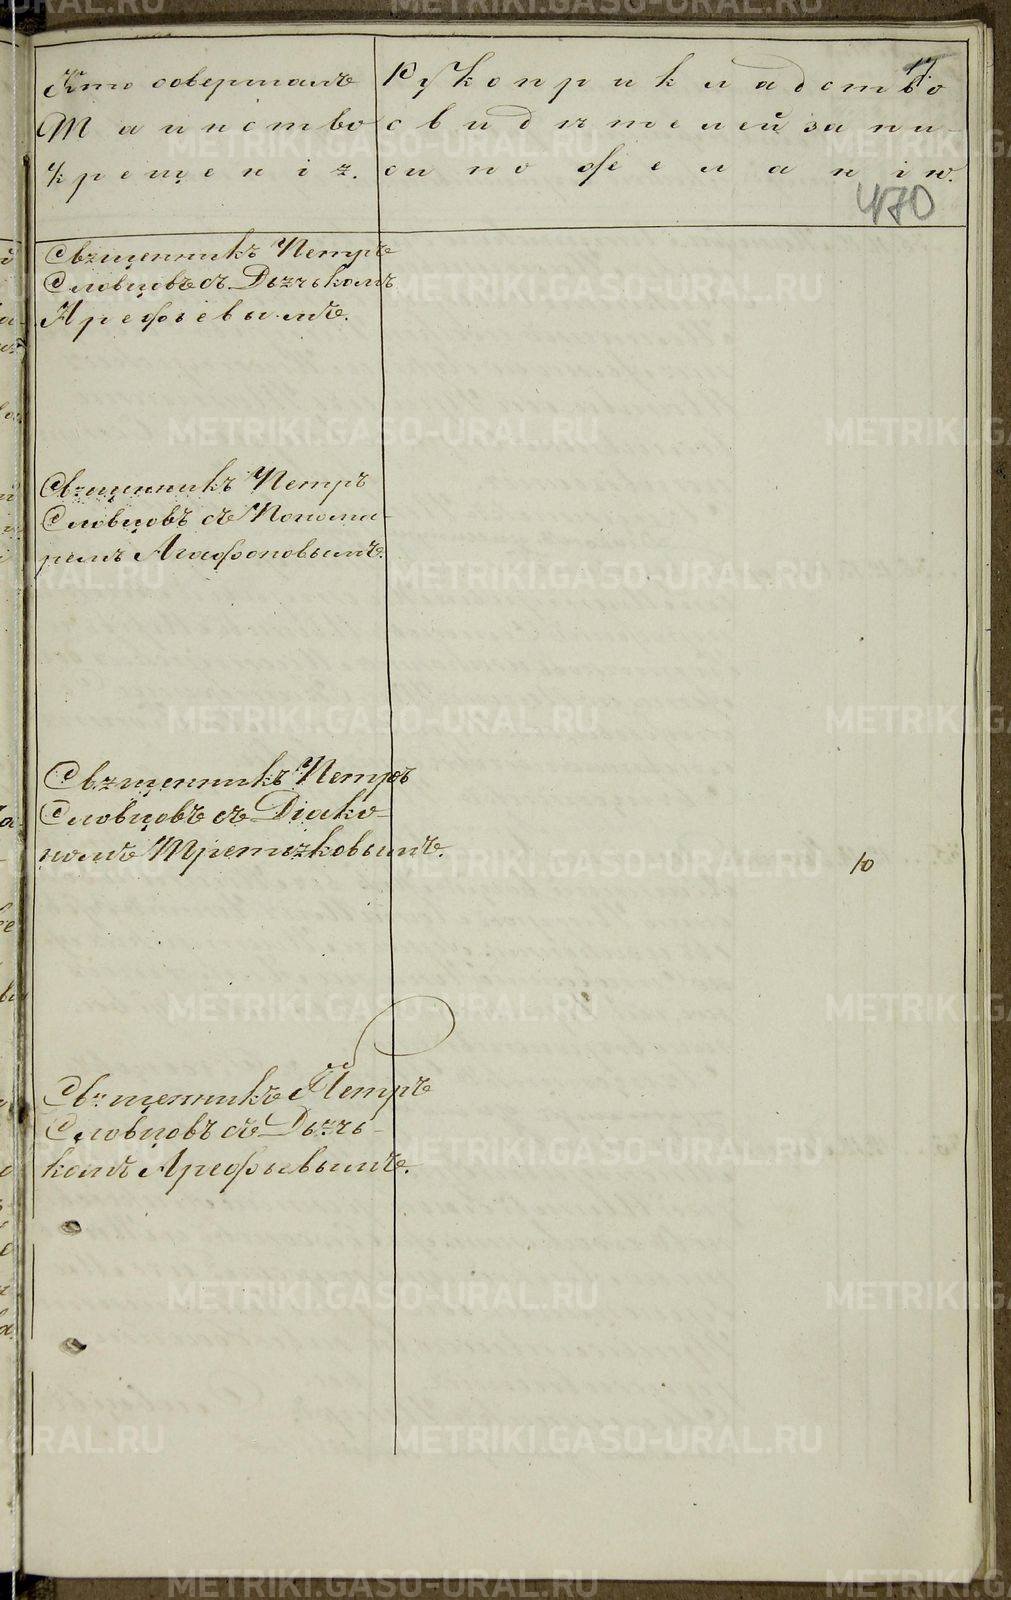 Кто совершалъ
Таинство
крещенія.
Рукоприкладство
свидѣтелей запи-
си по желанію.
17
470
Священникъ Петръ
Словцовъ съ Дьячькомъ
Арефьевымъ.
Священникъ Петръ
Словцовъ съ Понома-
ремъ Агафоновымъ.
Священникъ Петръ
Словцовъ съ Діако-
номъ Третьяковымъ.
Ю
Священникъ Петръ
Словцовъ съ Дьячь-
комъ Арефьевымъ.
METRIKI.GASO-URAL.RU